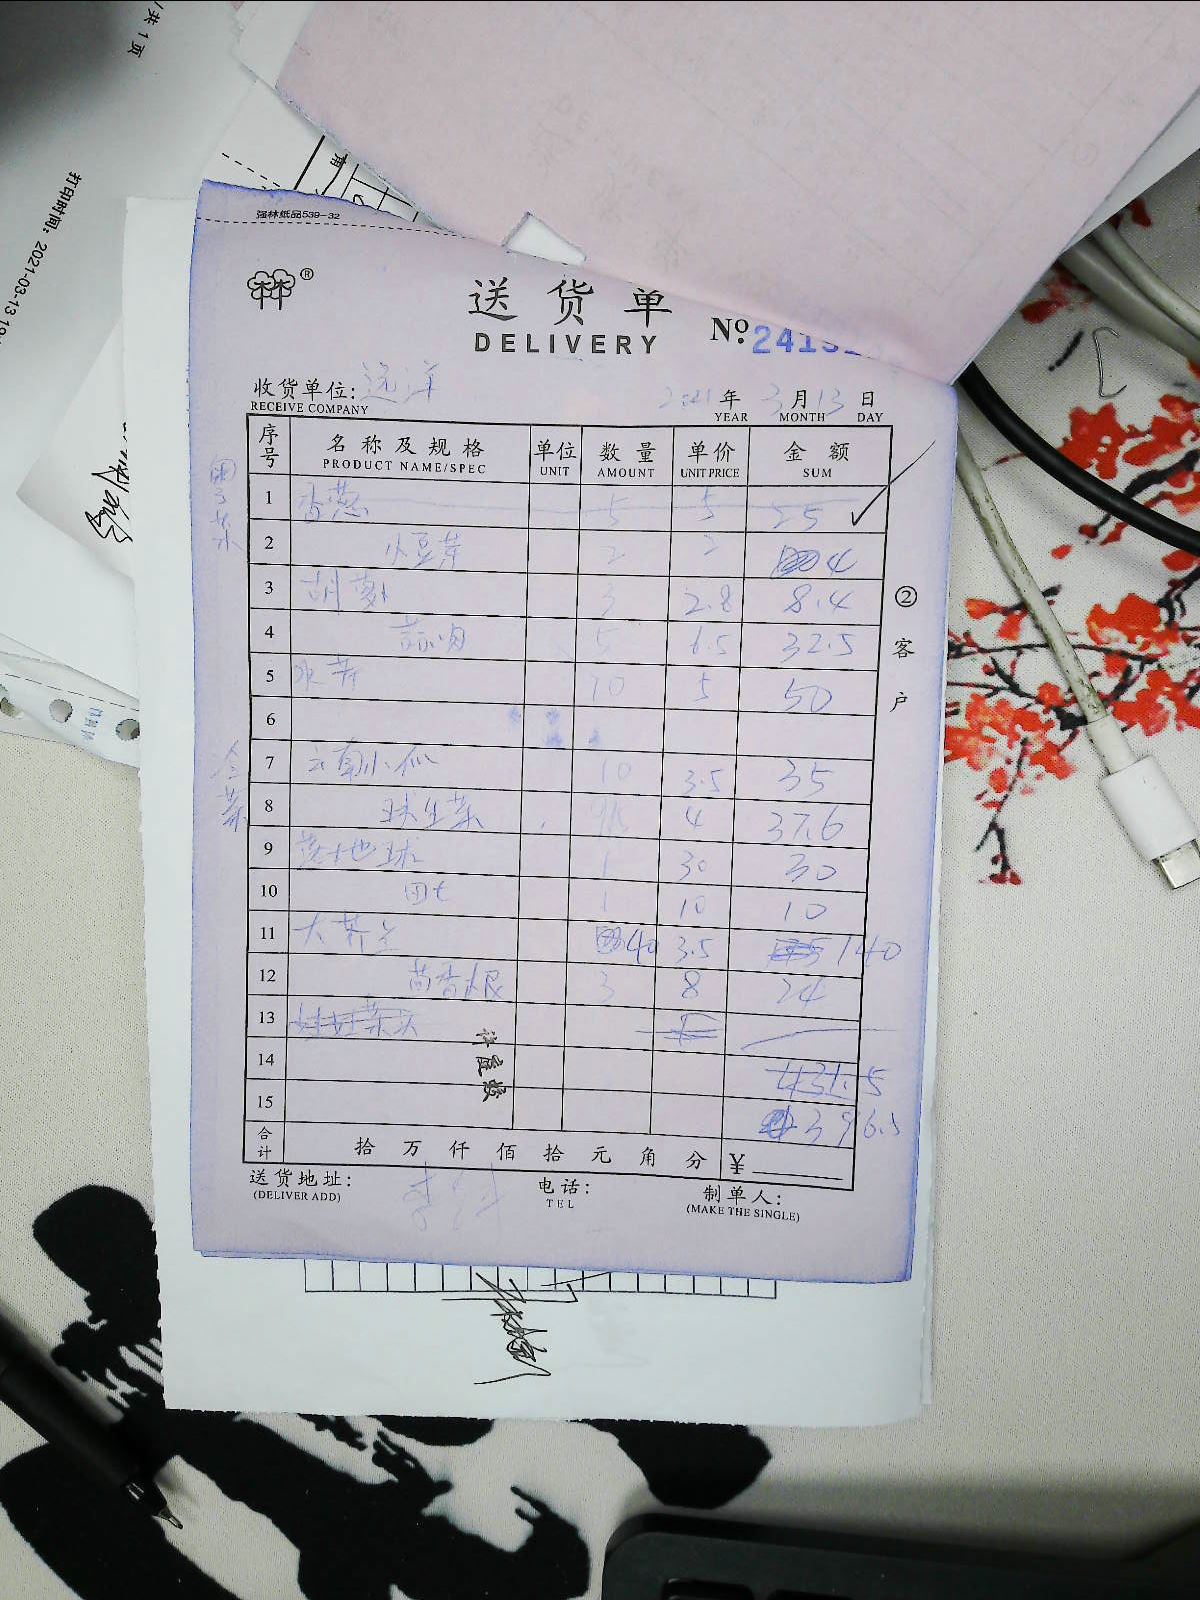 /共 1 页
打印时间：2021-03-13 19
强林纸品539-32
®
送货单
DELIVERY
No. 2415
收货单位：远洋
RECEIVE COMPANY
2021 年 3 月 13 日
YEAR MONTH DAY
序号 名称及规格 单位 数量 单价 金额
PRODUCT NAME/SPEC UNIT AMOUNT UNIT PRICE SUM
1 香葱 5 5 25
2 小豆芽 2 2 4
3 胡萝卜 3 2.8 8.4
4 蒜肉 5 6.5 32.5
5 水芹 10 5 50
6
7 云南小瓜 10 3.5 35
8 球生菜 4 37.6
9 落地球 1 30 30
10 田七 1 10 10
11 大芥兰 40 3.5 140
12 茴香根 3 8 24
13 娃娃菜头
14 431.5
15 396.5
合计 拾 万 仟 佰 拾 元 角 分 ¥
送货地址：
(DELIVER ADD)
电话：
TEL
制单人：
(MAKE THE SINGLE)
②客户
冷菜